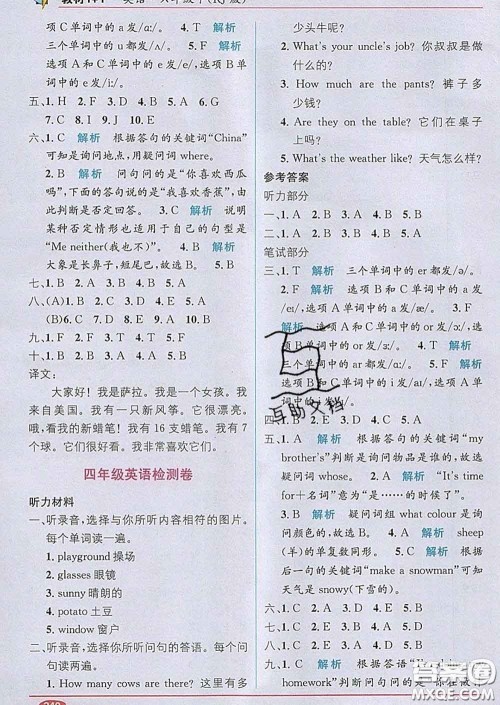 教材1+1
项 C 单词中的 a 发/eɪ/。
三个单词中的
选项 A 和 C 单词中的 i 发/aɪ/,
选项 B 单词中的 i 发/ɪ/。
五、1. H 2. F 3. D 4. A 5. B 6. G
7. C 8. I 9. J 10. E
六、1. C 解析 根据答句的关键词“China”
可知是询问地点,用疑问词 where。
2. B 解析 问句问的是“你喜欢西瓜
吗”,答句说的是“我喜欢香蕉”,由
此判断是否定回答。 3. C 解析 说明
某种否定情形也适用于自己的句型是
“Me neither(我也不)” 4. B 解析
大象是长鼻子,短尾巴,故选 B。 5. A
七、1. D 2. A 3. B 4. C 5. E
八、(A) 1. C 2. D 3. A 4. B 5. E
(B) 1. F 2. F 3. T 4. F 5. T
九、1. D 2. C 3. A 4. E 5. B
十、1. B 2. B 3. A 4. B 5. A
译文:
大家好!我是萨拉。我是一个女孩。我
来自美国。我有一只新风筝。它很漂亮。
哦,看我的新蜡笔!我有 16 支蜡笔。我有 7
个球。它们很好看。我非常喜欢它们。
四年级英语检测卷
听力材料
一、听录音,选择与你所听内容相符的图片。
每个单词读一遍。
1. playground 操场
2. glasses 眼镜
3. sunny 晴朗的
4. potato 土豆
5. window 窗户
二、听录音,选择你所听问句的答语。每个问
句读两遍。
1. How many cows are there? 这里有多
少头牛呢?
2. What's your uncle's job? 你叔叔是做
什么的?
3. How much are the pants? 裤子多
少钱?
4. Are they on the table? 它们在桌子
上吗?
5. What's the weather like? 天气怎么样?
参考答案
听力部分
一、1. A 2. B 3. A 4. B 5. B
二、1. A 2. B 3. A 4. B 5. A
笔试部分
三、1. T 解析 三个单词中的 er 都发/ə/。
2. F 解析 选项 B 和 C 单词中的 a 发
/eɪ/,选项 A 单词中的 a 发/æ/。 3. F
解析 选项 A 和 C 单词中的 or 发/ɔː/,选
项 B 单词中的 or 发/ɜː/。 4. T 解析
三个单词中的 ar 都发/ɑː/。 5. F 解析
选项 B 和 C 单词中的 i 发/aɪ/,选项 A 单
词中的 i 发/ɪ/。
四、1. B 2. D 3. A 4. C 5. A
五、1. A 解析 根据答句的关键词“my
brother's”判断是询问东西是谁的,故
选 A。 2. B 解析 “It's time
for+名词”意为“是……的时候了”。
3. B 解析 疑问词组 what colour 意为询
问颜色的,故选 B。 4. B 解析 sheep
(羊)的单复数同形。 5. C 解析 根
据后一句的关键词“make a snowman”可知
天气是 snowy(下雪的)。
六、1. C 2. D 3. A 4. E 5. B
七、1. B 2. B 3. B 4. A 5. A
八、1. C 2. E 3. D 4. A 5. B
九、1. C 解析 根据答语
homework”判断问的是“你在做什
互助文档
答案圈
MXQE.COM